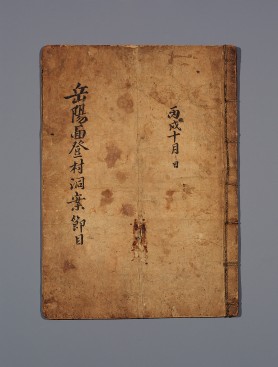 丙戌十月日
岳陽面登村洞案節目